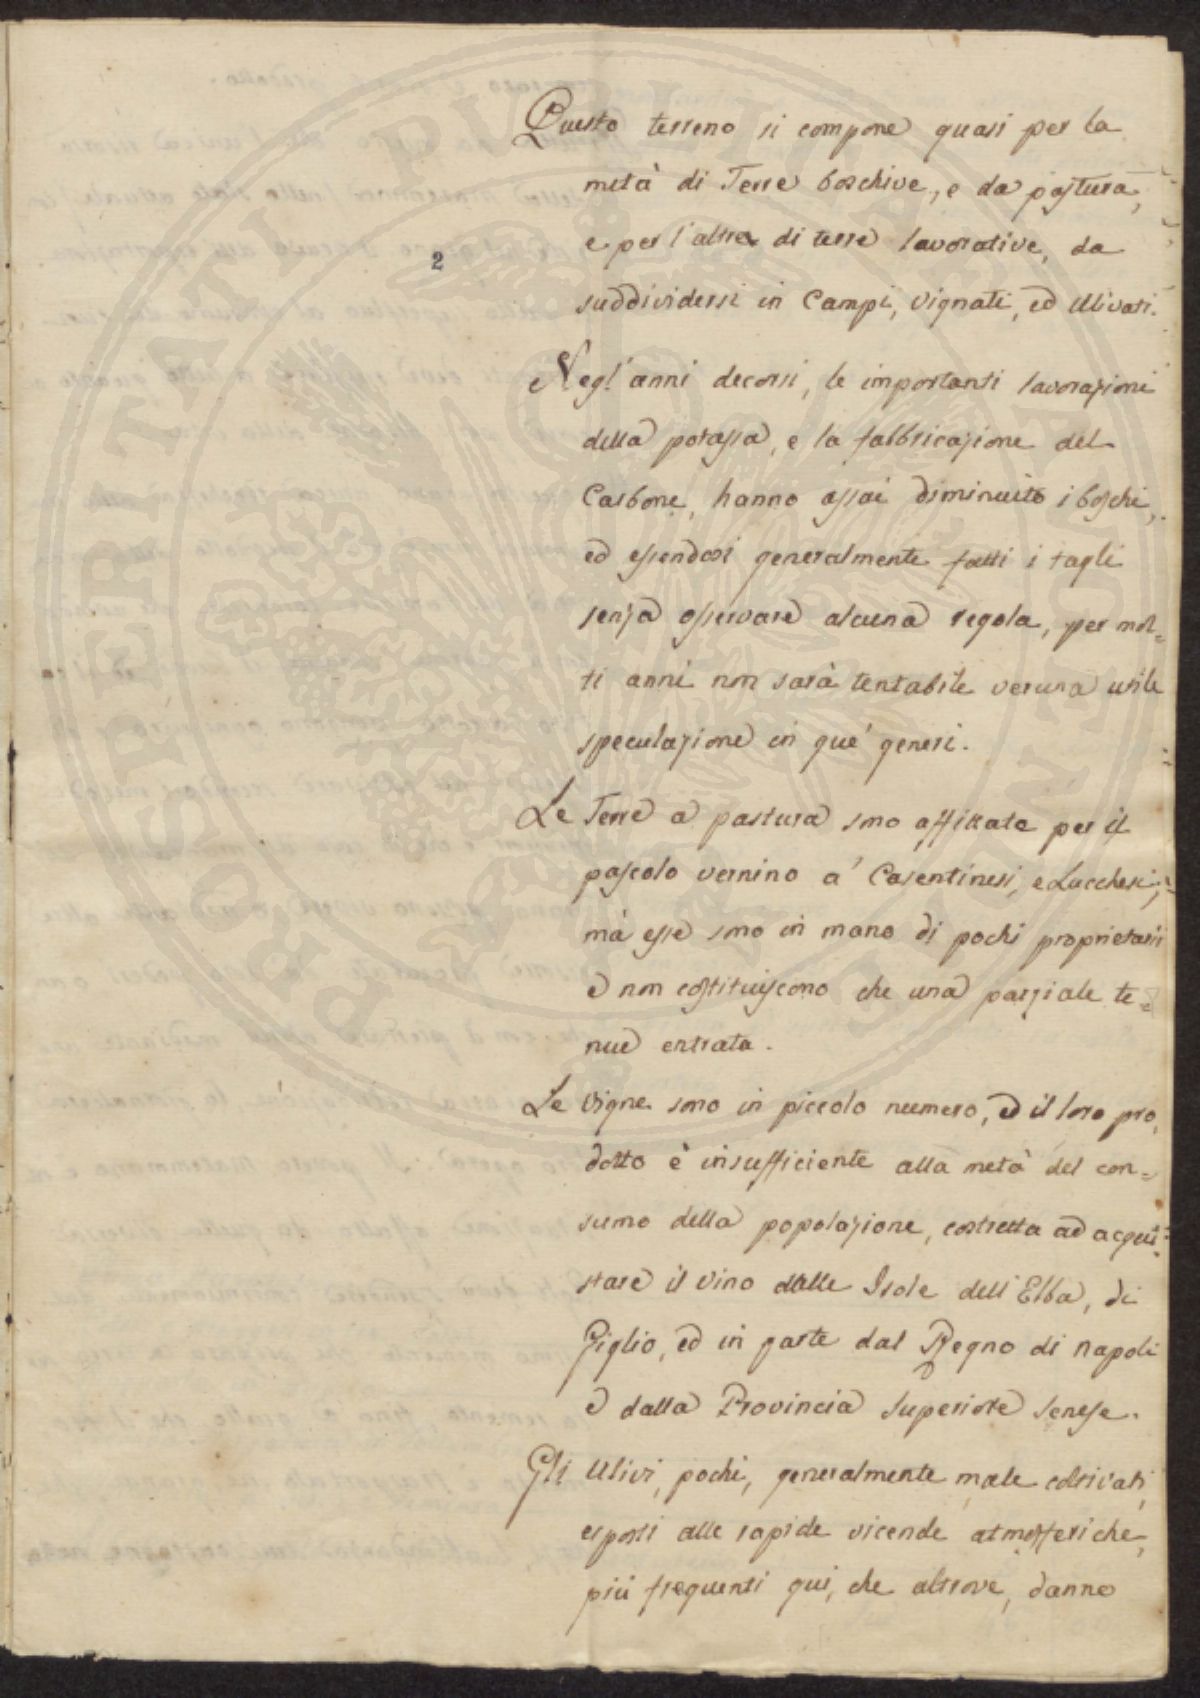 Questo terreno si compone quasi per la
metà di Terre boschive, e da pastura,
e per l'altra di terre lavorative, da
suddividersi in Campi, vignati, ed Ulivati.
2
Negl'anni decorsi, le importanti lavorazioni
della potassa, e la fabbricazione del
Carbone, hanno assai diminuito i boschi,
ed essendosi generalmente fatti i tagli
senza osservare alcuna regola, per mol=
ti anni non sarà tentabile veruna utile
speculazione in que' generi.
Le Terre a pastura sono affittate per il
pascolo vernino a' Casentinesi, e Lucchesi;
mà esse sono in mano di pochi proprietarii
e non costituiscono che una parziale te=
nue entrata.
Le Vigne sono in piccolo numero, ed il loro pro,
dotto è insufficiente alla metà del con=
sumo della popolazione, costretta ad acqui=
stare il vino dalle Isole dell'Elba, di
Giglio, ed in parte dal Regno di Napoli
e dalla Provincia Superiore Senese.
Gli Ulivi, pochi, generalmente male coltivati,
esposti alle rapide vicende atmosferiche,
più frequenti qui, che altrove, danno
PROSPERITATI PUBLICAE